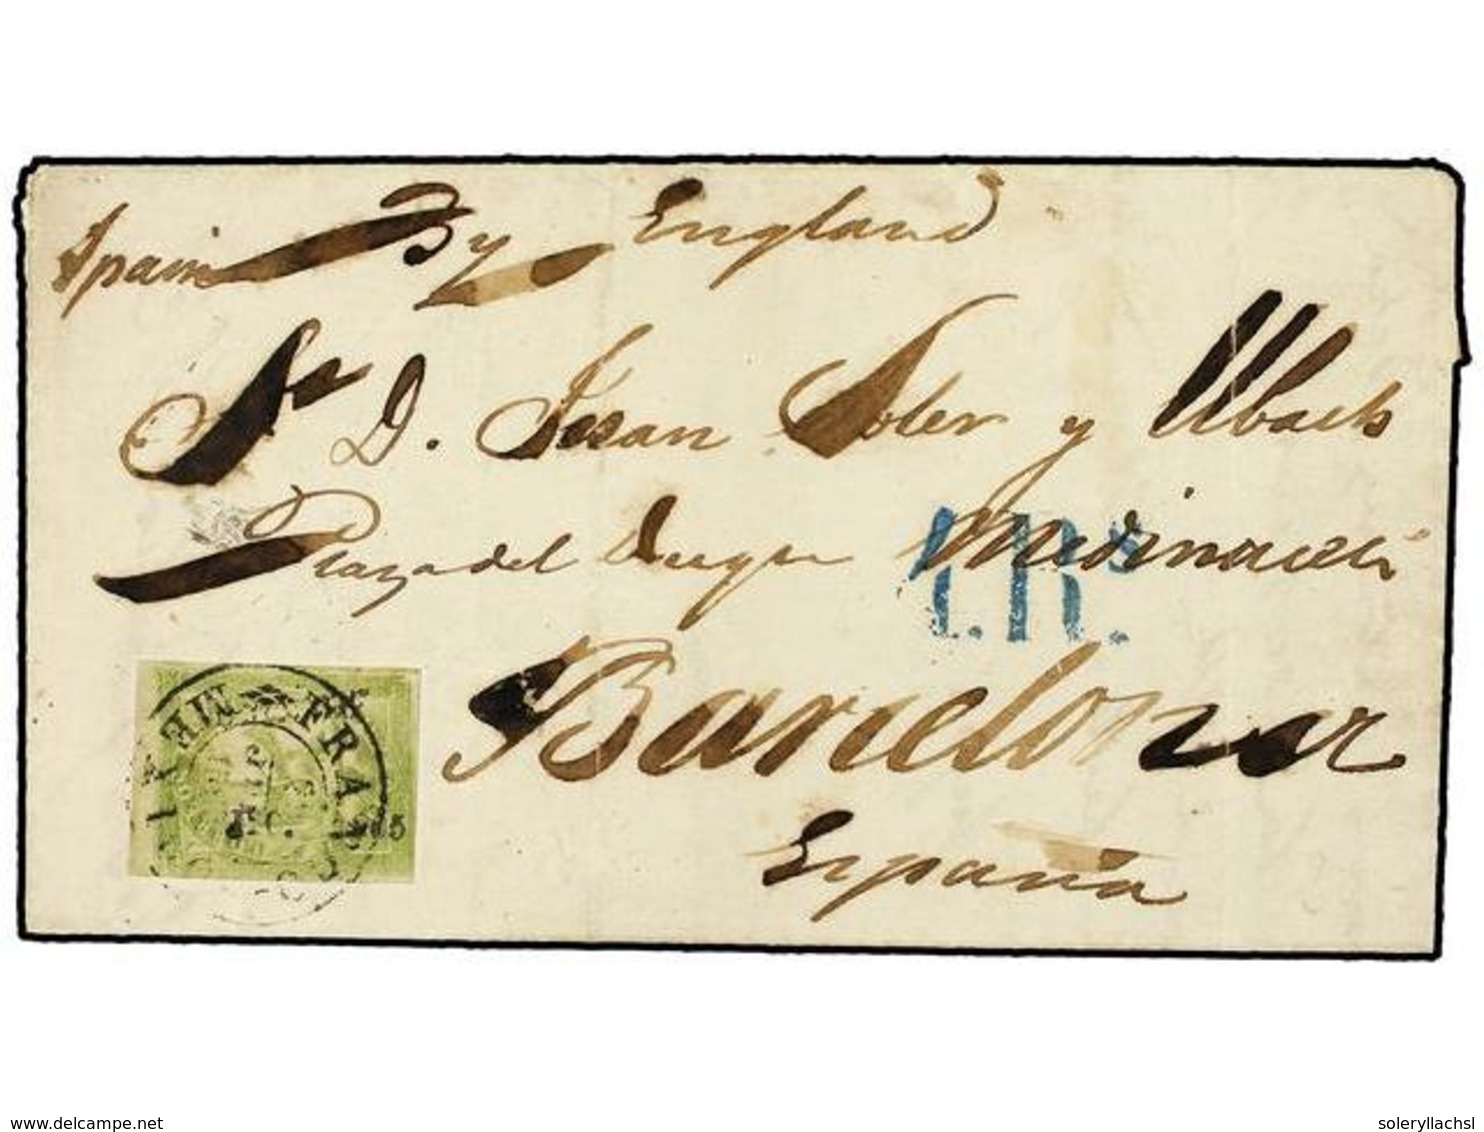 Spain By England
Sr D. Juan Soler y Ubach
Plaza del Duque Medinaceli
4.Rs.
Barcelona
España
FRANCO MEXICO
delcampe.net
soleryllachsl